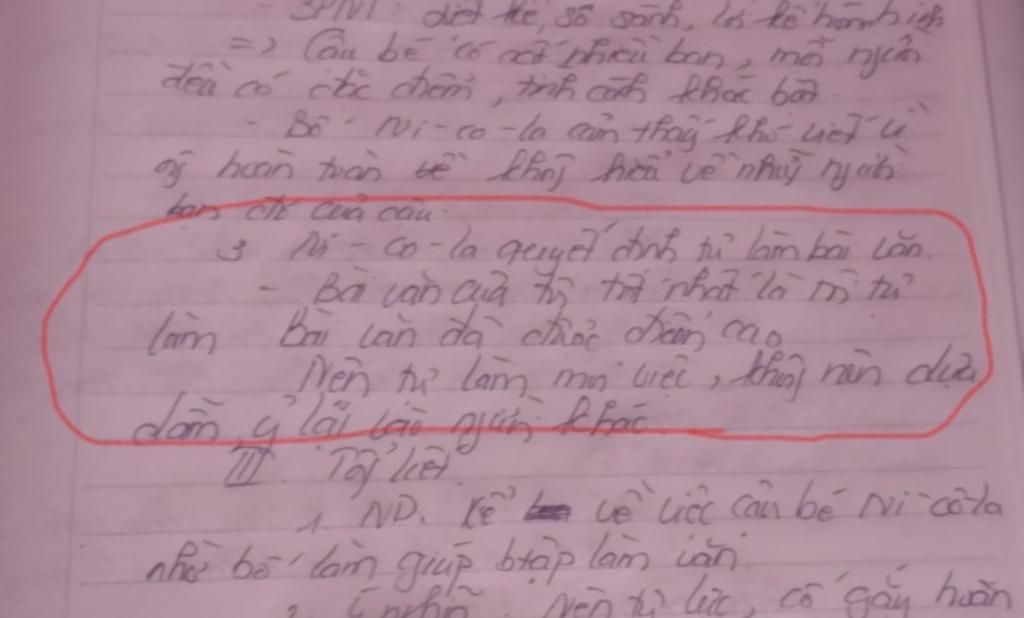 - BPNT: liệt kê, so sánh, lời kể hóm hỉnh
=> Cậu bé có rất nhiều bạn, mỗi người
đều có đặc điểm, tính cách khác bạn
- Bố Ni-co-la cảm thấy khó viết vì
ông hoàn toàn không hiểu về những người
bạn của cậu.
3 Ni-co-la quyết định tự làm bài văn
- Bài văn của tôi tốt nhất là tôi tự
làm Bài văn đã được điểm cao
Nên tự làm mọi việc, không nên dựa
dẫm, ỷ lại vào người khác
III. Tổng kết
1. ND. Kể về việc cậu bé Ni-cô-la
nhờ bố làm giúp btập làm văn.
2. Nên tự lực, cố gắng hoàn